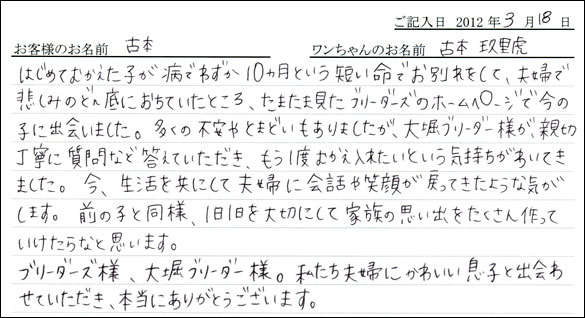 ご記入日 2012年3月18日
お客様のお名前 古本 ワンちゃんのお名前 古本 玖里虎
はじめてむかえた子が病でわずか10ヵ月という短い命でお別れをして、夫婦で
悲しみのどん底におちていたところ、たまたま見たブリーダーズのホームページで今の
子に出会いました。多くの不安やとまどいもありましたが、大堀ブリーダー様が、親切
丁寧に質問など答えていただき、もう1度むかえ入れたいという気持ちがわいてき
ました。今、生活を共にして夫婦に会話や笑顔が戻ってきたような気が
します。前の子と同様、1日1日を大切にして家族の思い出をたくさん作って
いけたらなと思います。
ブリーダーズ様、大堀ブリーダー様。私たち夫婦にかわいい息子と出会わ
せていただき、本当にありがとうございます。